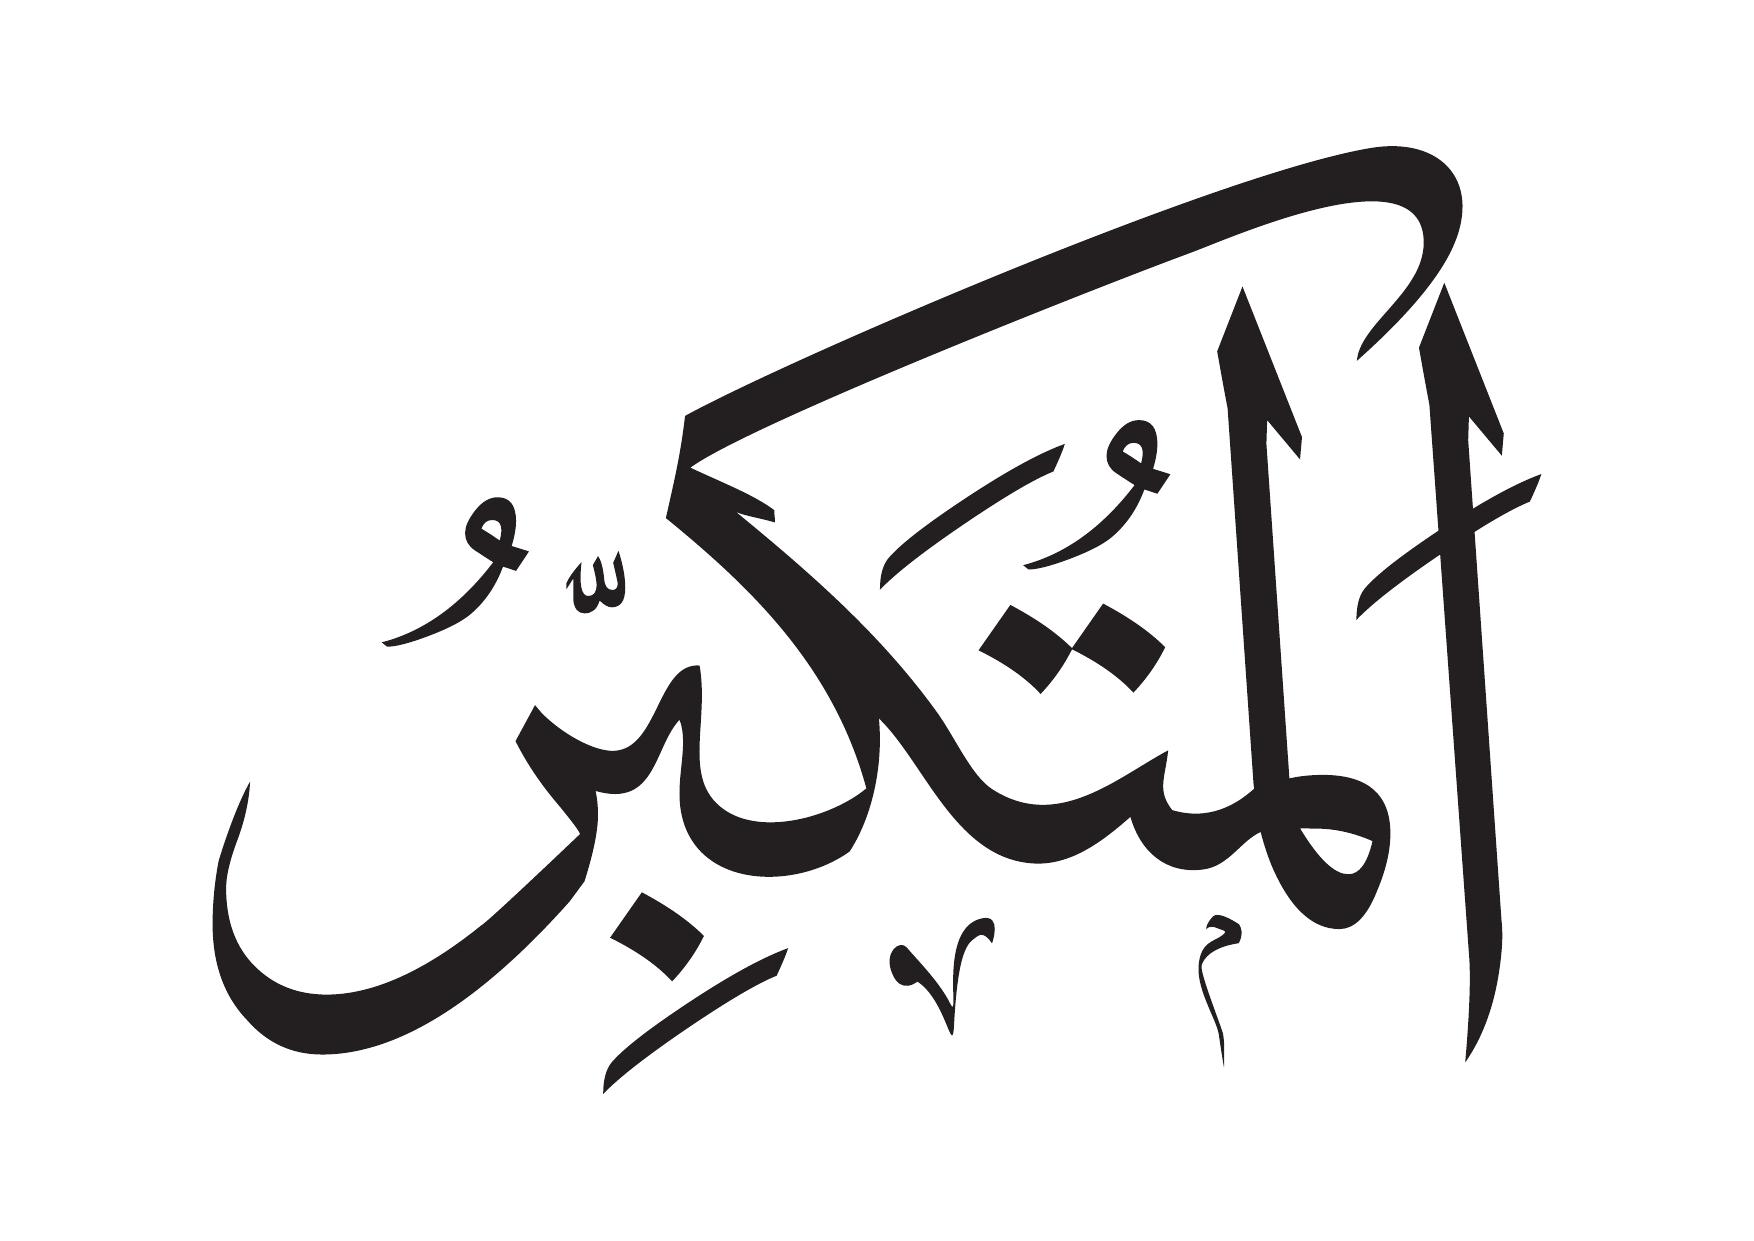 المُتَكَبِّرُ